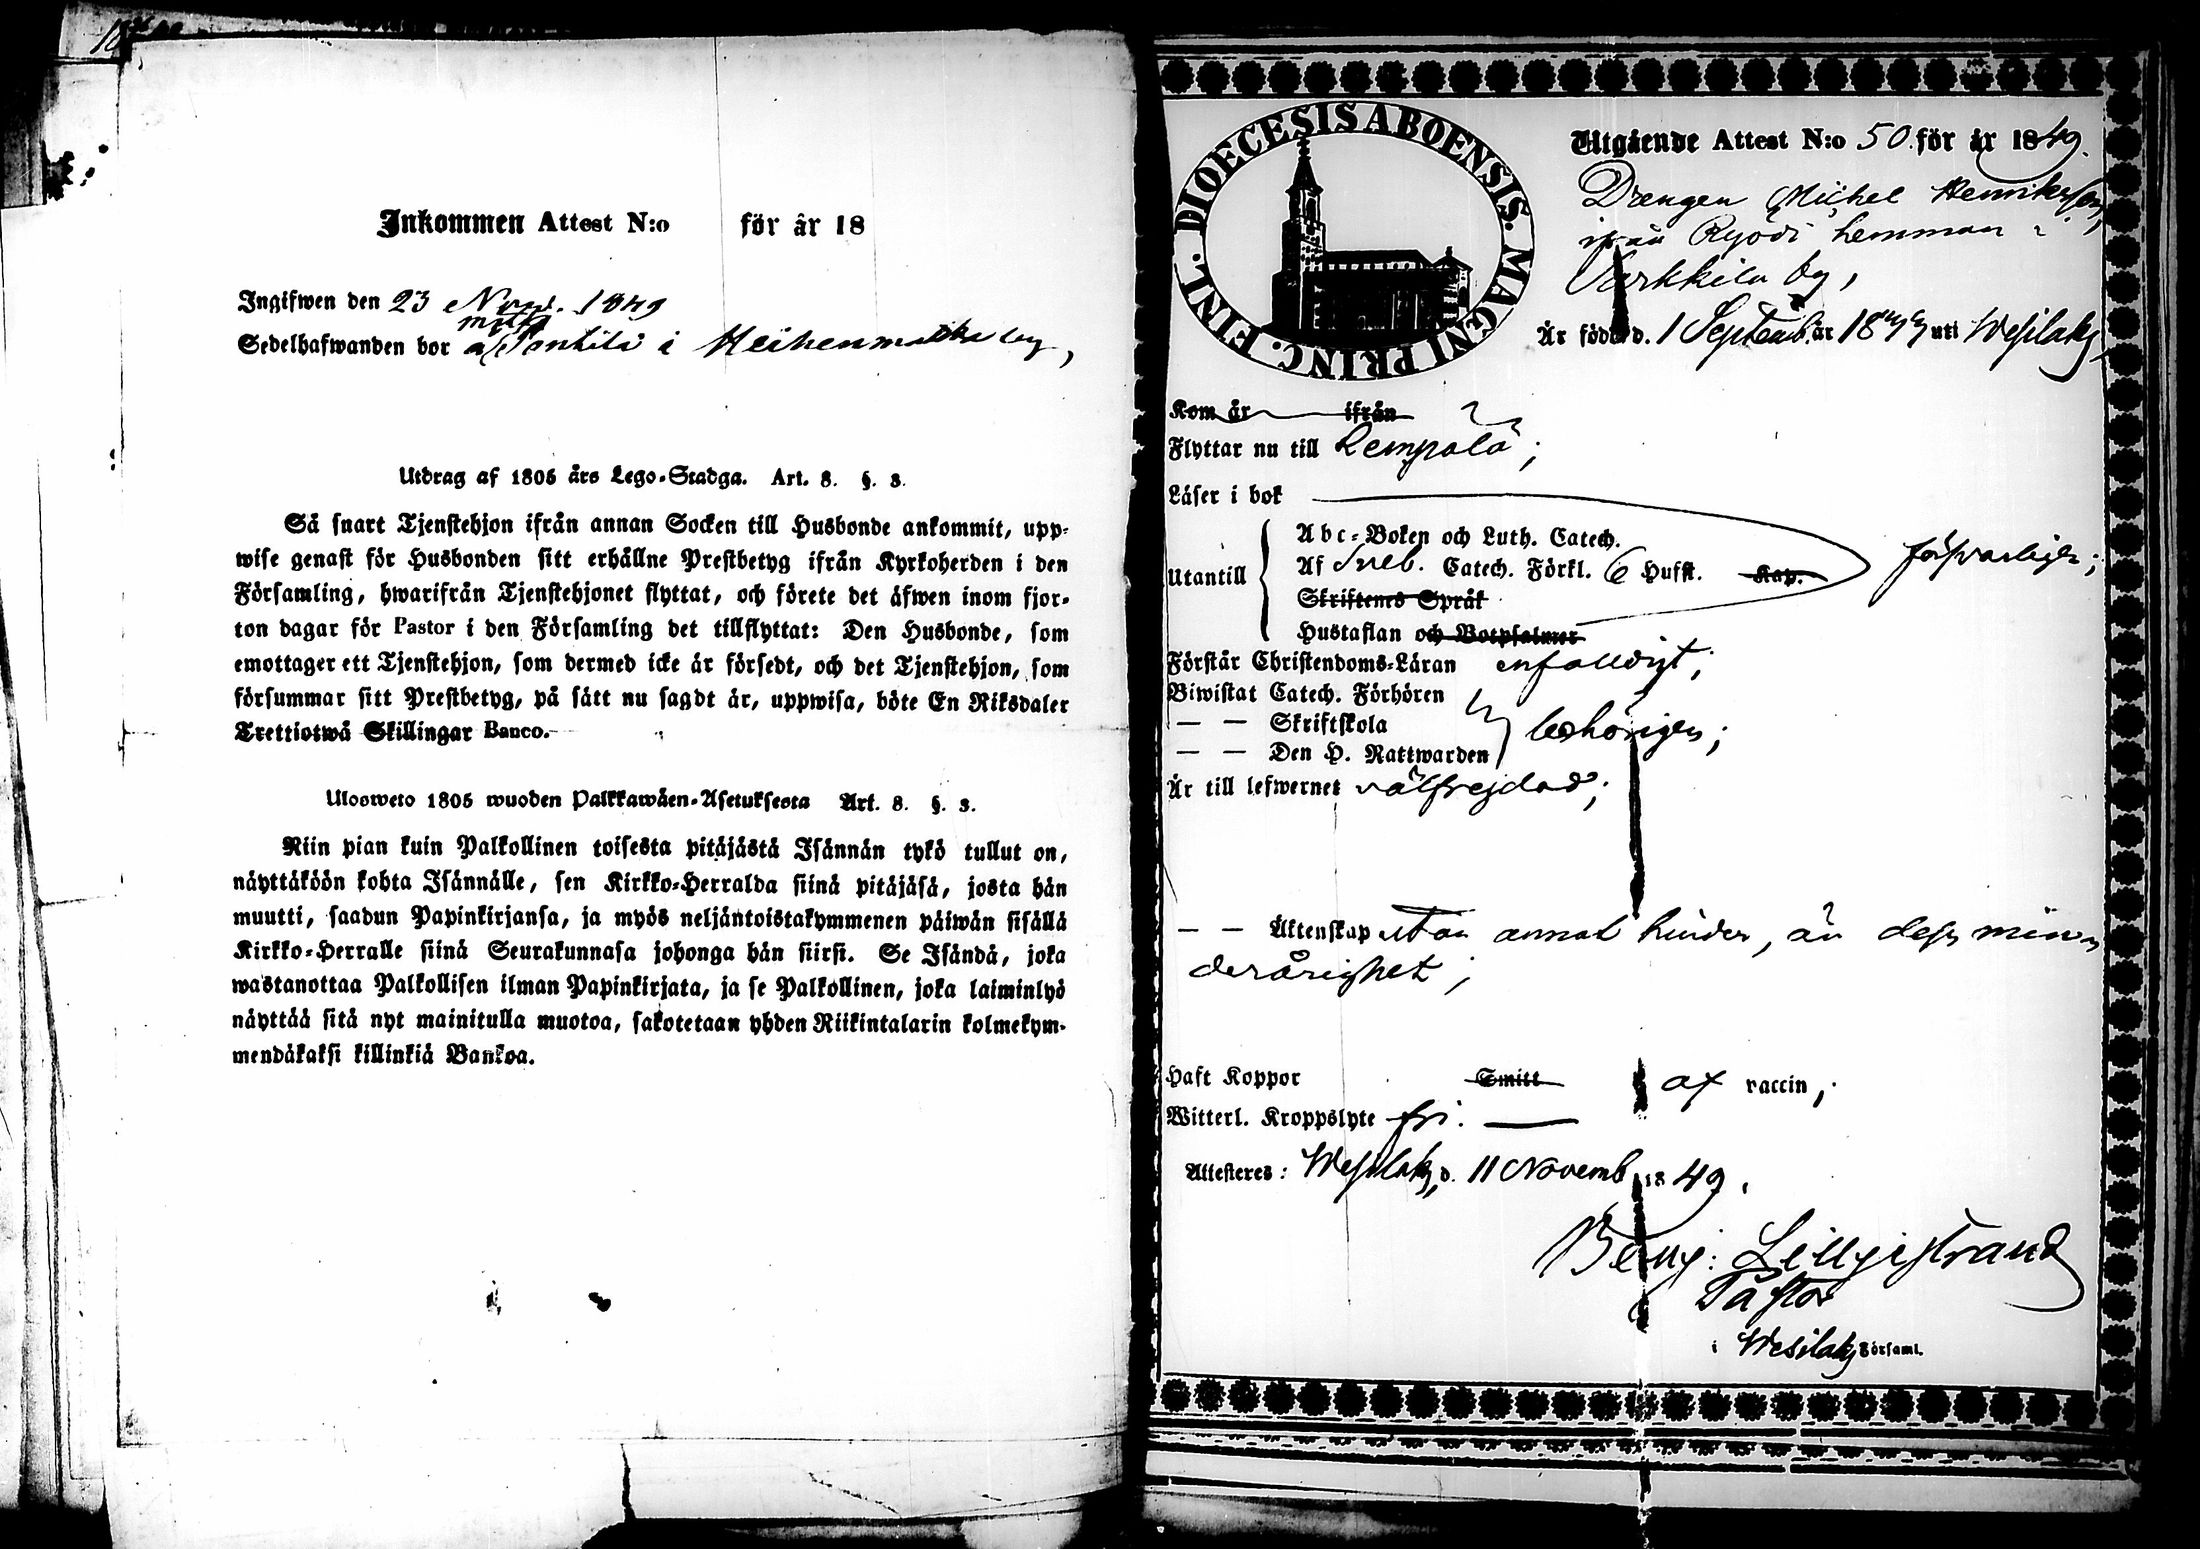 Inkommen Attest N:o för år 18
Ingifwen den 23 Nov. 1849
Sedelhafwanden bor i by,
Utdrag af 1805 års Lego-Stadga. Art. 8. §. 3.
Så snart Tjenstehjon ifrån annan Socken till Husbonde ankommit, upp-
wise genast för Husbonden sitt erhållne Prestbetyg ifrån Kyrkoherden i den
Församling, hwarifrån Tjenstehjonet flyttat, och förete det äfwen inom fjor-
ton dagar för Pastor i den Församling det tillflyttat: Den Husbonde, som
emottager ett Tjenstehjon, som dermed icke är försedt, och det Tjenstehjon, som
försummar sitt Prestbetyg, på sätt nu sagdt är, uppwisa, böte En Riksdaler
Trettiotwå Skillingar Banco.
Ulosweto 1805 wuoden Palkkawäen-Asetuksesta Art. 8. §. 3.
Niin pian kuin Palkollinen toisesta pitäjästä Isännän tykö tullut on,
näyttäköön kohta Isännälle, sen Kirkko-Herralda siinä pitäjäsä, josta hän
muutti, saadun Papinkirjansa, ja myös neljäntoistakymmenen päiwän sisällä
Kirkko-Herralle siinä Seurakunnasa johonga hän siirsi. Se Isändä, joka
wastanottaa Palkollisen ilman Papinkirjata, ja se Palkollinen, joka laiminlyö
näyttää sitä nyt mainitulla muotoa, sakotetaan yhden Riikintalarin kolmekym-
mendäkaksi killinkiä Bankoa.
DIOECESIS ABOENSIS. MAGNI PRINC. FINL.
Utgående Attest N:o 50. för år 1849.
Drengen Michel Henriksson,
ifrån hemman i
by,
Är född d. 1 Septemb. år 18 uti Wesilaks,
Kom år ifrån
Flyttar nu till Lempälä;
Läser i bok
Utantill
Abc-Boken och Luth. Catech.
Af Sveb. Catech. Förkl. 6 Hufst. Kap.
försvarligen;
Skriftenes Språk
Hustaflan och Botpsalmer
Förstår Christendoms-Läran enfaldigt;
Biwistat Catech. Förhören
— — Skriftskola
behörigen;
— — Den H. Nattwarden
Är till lefwernet välfrejdad;
— — Äktenskap utan annat hinder, än dess min-
derårighet;
Haft Koppor Smitt af vaccin;
Witterl. Kroppslyte fri.
Attesteres: Wesilaks, d. 11 Novemb. 1849.
Benj: Liljestrand
Pastor
i Wesilaks Församl.